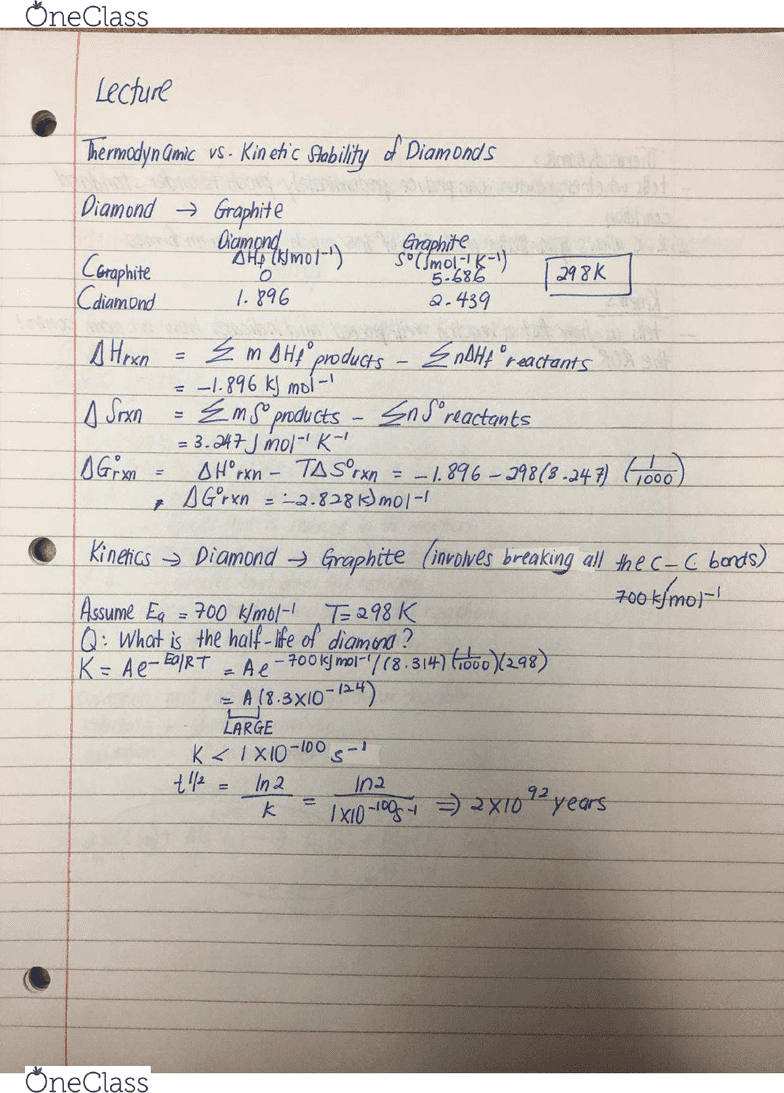 OneClass
Lecture
Thermodynamic vs. Kinetic Stability of Diamonds
Diamond → Graphite
Diamond Graphite
ΔHf (kJmol-¹) S°(Jmol-¹K-¹)
CGraphite 0 5.686 298K
Cdiamond 1.896 2.439
ΔHrxn = Σ m ΔHf° products - Σ nΔHf° reactants
= -1.896 kJ mol-¹
ΔSrxn = Σ m S° products - Σ n S° reactants
= 3.247 J mol-¹ K-¹
ΔG°rxn = ΔH°rxn - TΔS°rxn = -1.896 - 298(3.247) (1/1000)
ΔG°rxn = -2.828 kJ mol-¹
Kinetics → Diamond → Graphite (involves breaking all the C-C bonds)
700 kJ/mol-¹
Assume Ea = 700 kJ/mol-¹ T = 298 K
Q: What is the half-life of diamond?
K = Ae-Ea/RT = Ae-700kJ mol-¹/(8.314)(1/1000)(298)
= A(8.3x10-124)
LARGE
K < 1x10-100 s-¹
t1/2 = ln2/K = ln2/1x10-100s-1 => 2x10^92 years
OneClass